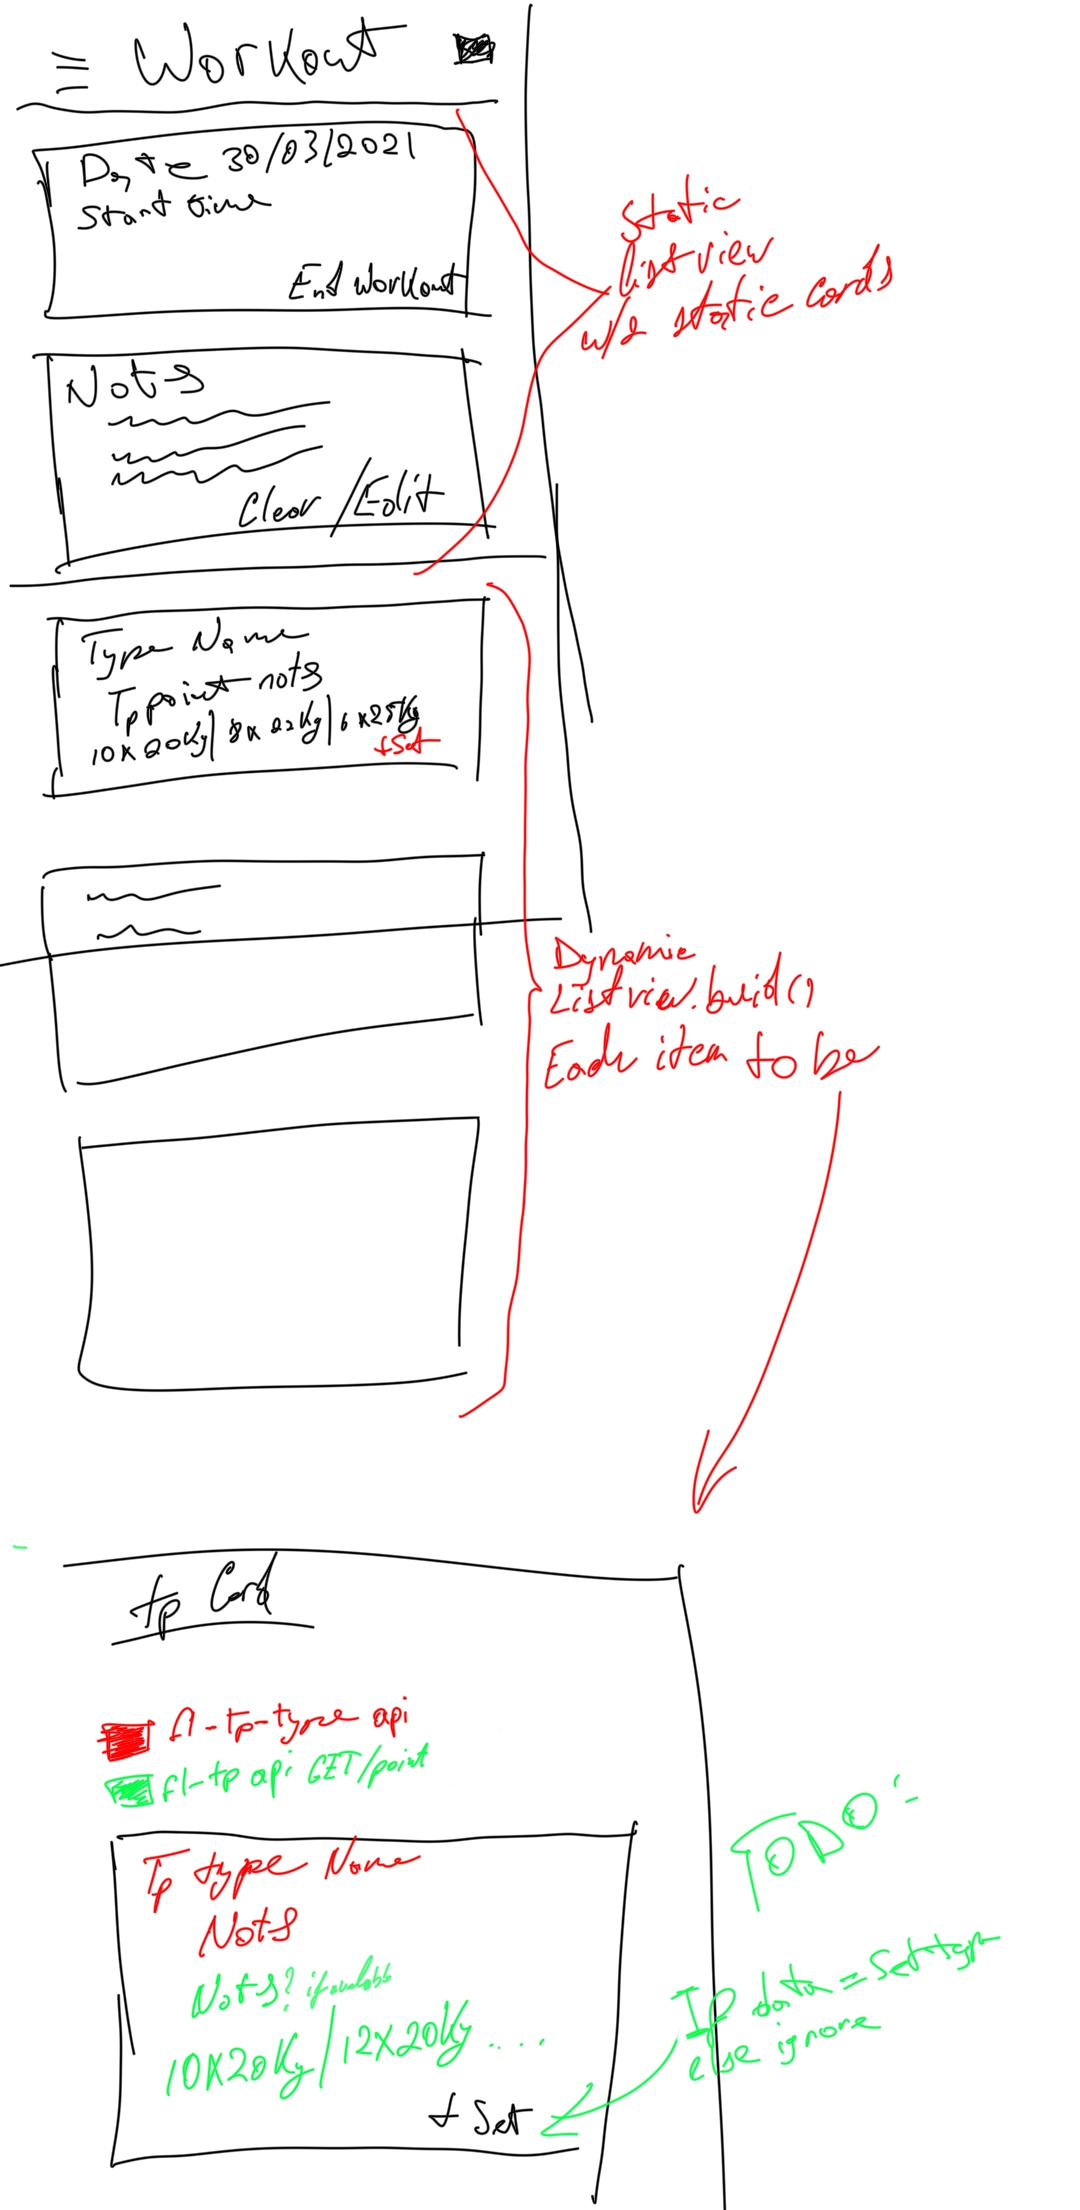 Workout
Date 30/03/2021
Start time
End Workout
Static
list view
w/2 static cards
Notes
Clear / Edit
Type Name
Tp point notes
10 x 20Kg | 8 x 22Kg | 6 x 25Kg
+ Set
Dynamic
Listview.build()
Each item to be
tp Card
fl-tp-type api
fl-tp api GET/point
TODO:-
Tp type Name
Notes
Notes? if available
10X20Kg / 12X20Kg ....
+ Set
If data = Set type
else ignore